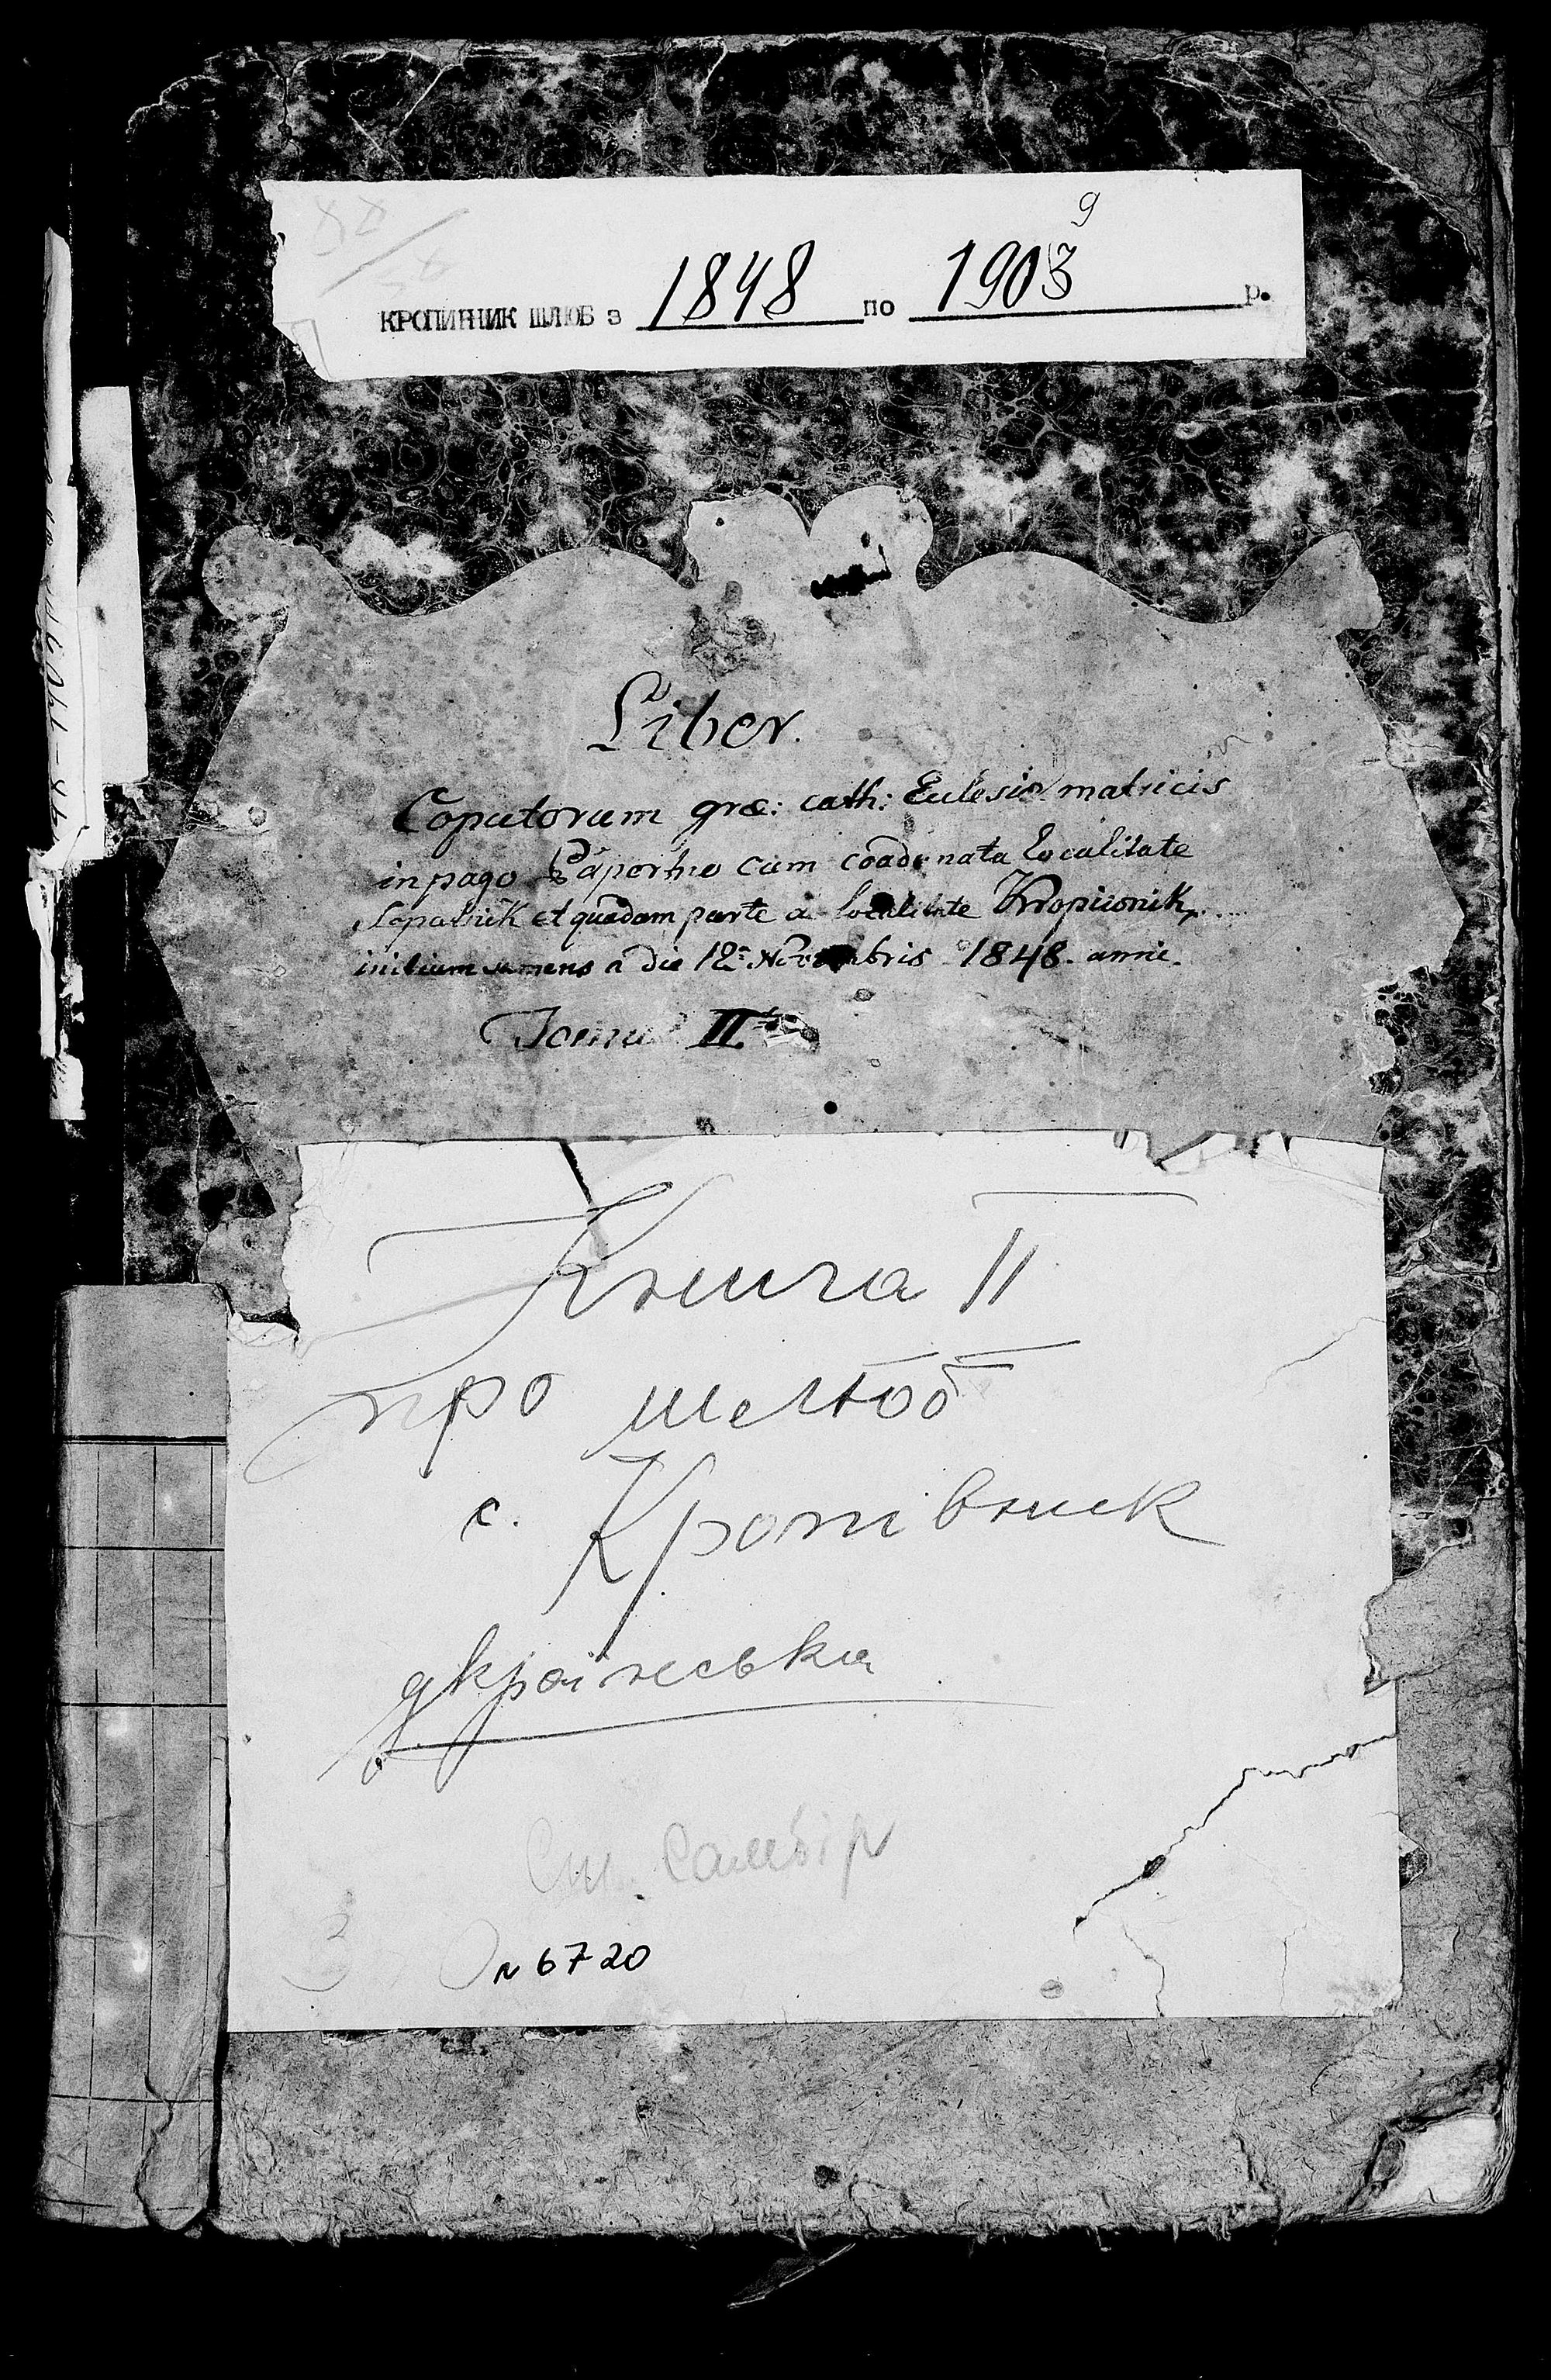 9
КРОПИВНИК ШЛЮБ з 1848 по 1903 р.
Liber.
Coputorum græ: cath: Eclesiæ matricis
in pago Páportno cum coadonata localitate
Lopuśnik et quadam parte a localitate Kropiwnik,
initium sumens a die 12. Novembris 1848. anni.
Tomus II.
Книга II
про шлюб
с. Кропівник
українська
Ст. Самбір
N 6720